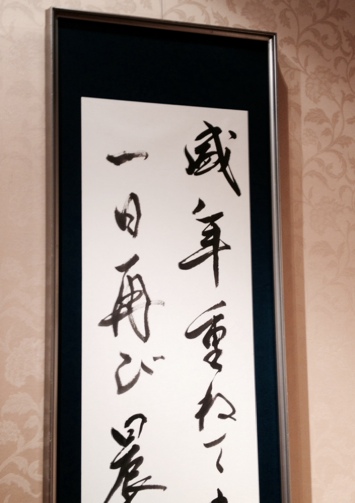 盛年重ねて
一日再び晨